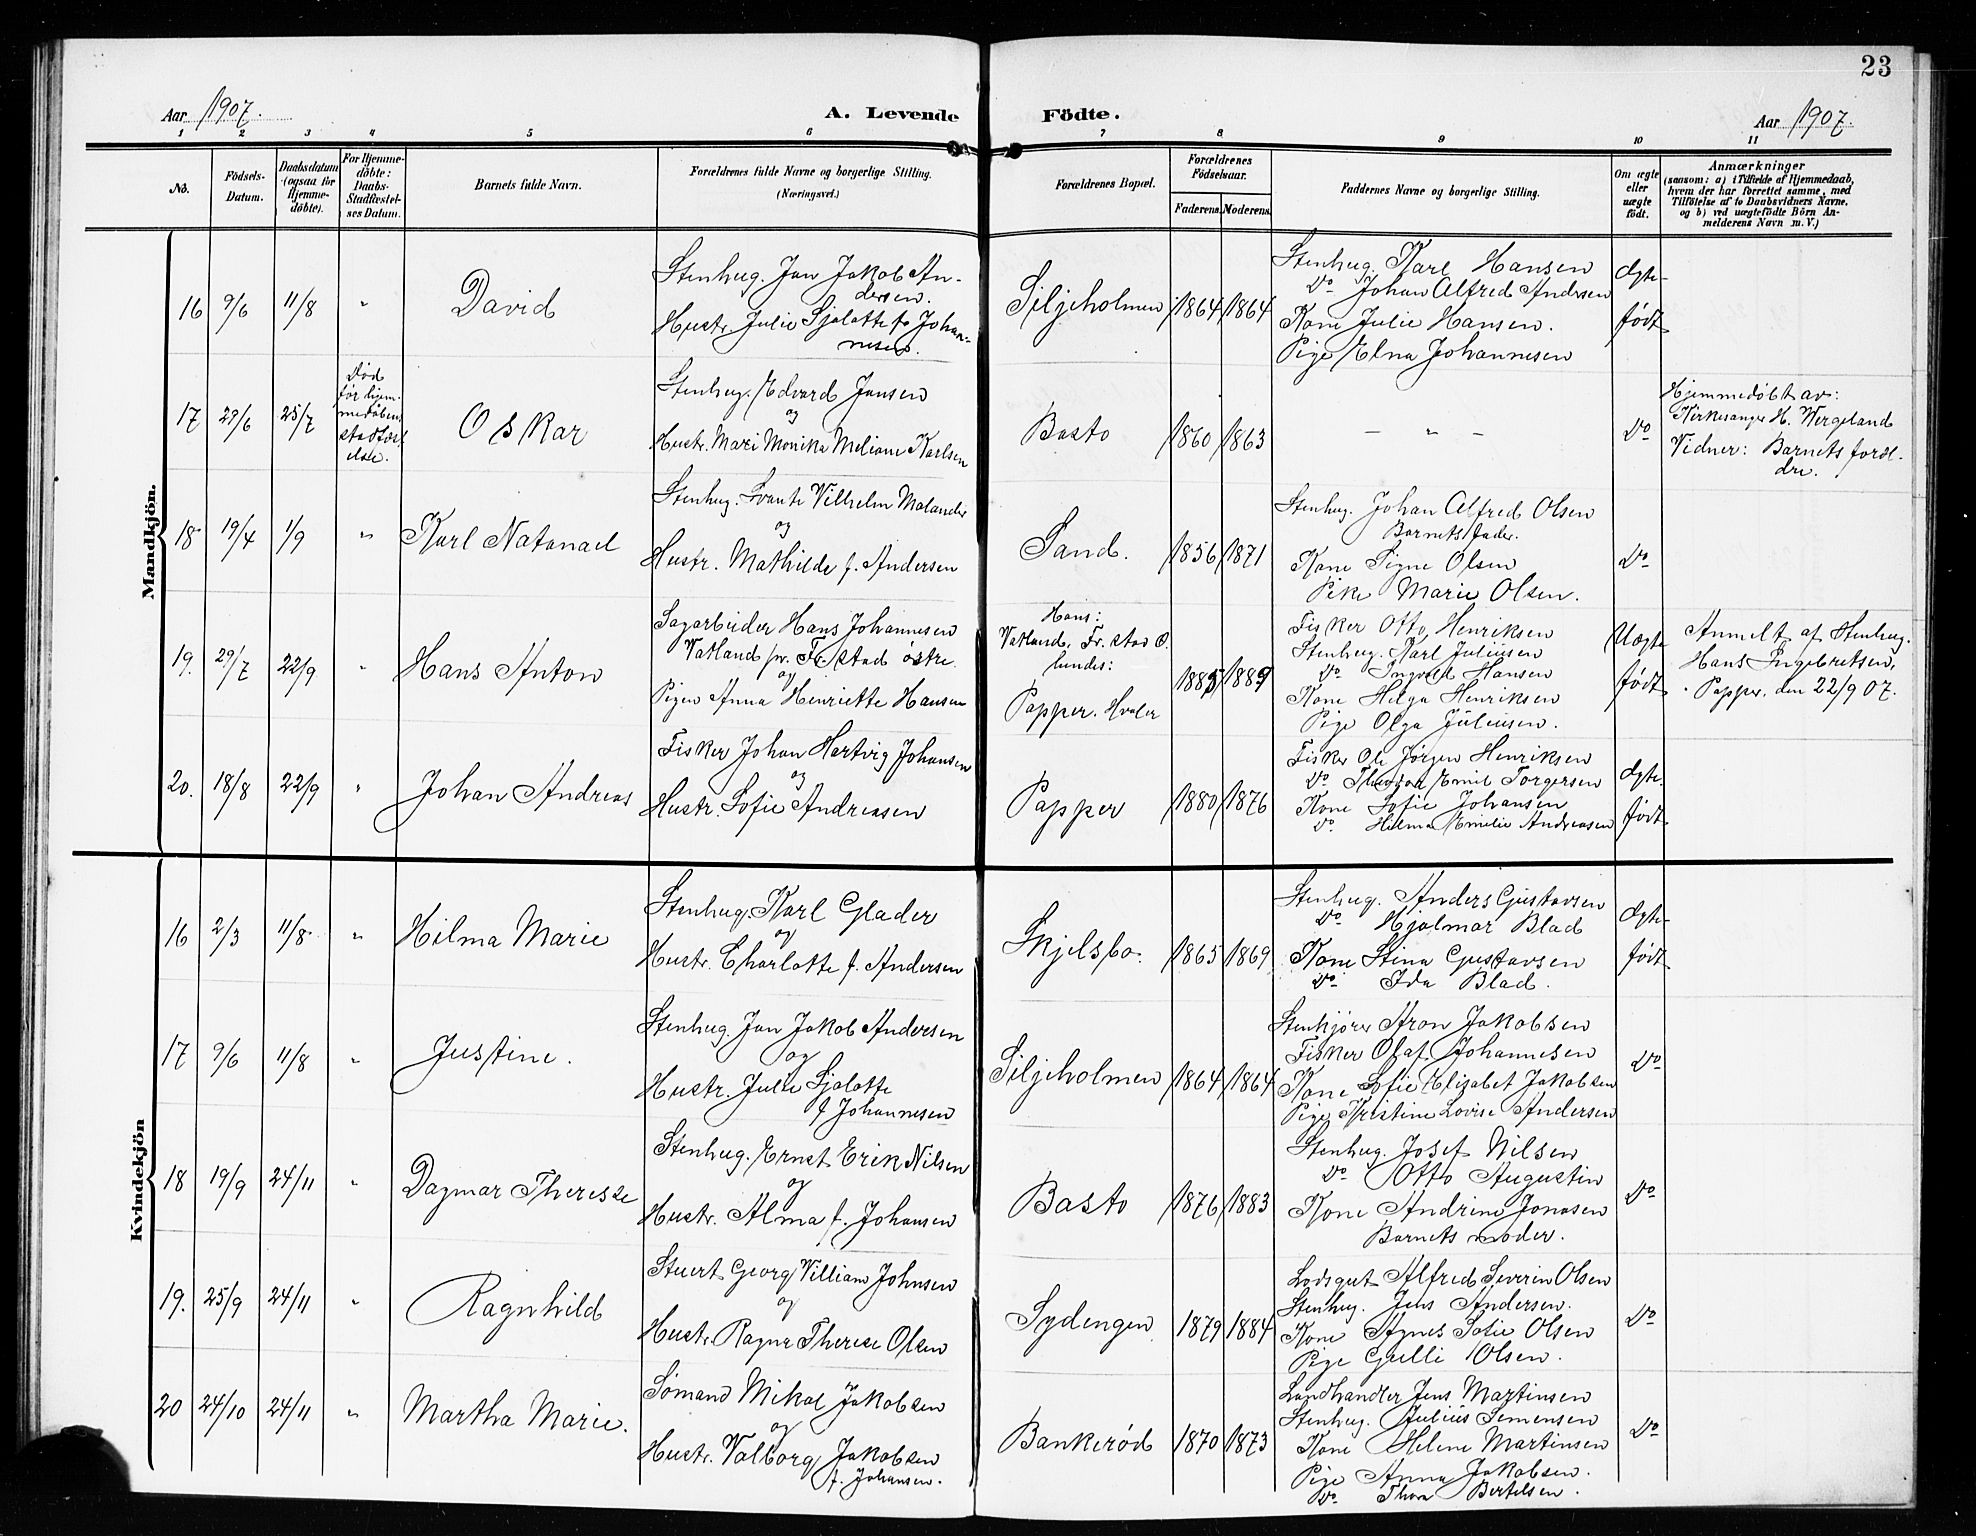 23
Aar 1907.
A. Levende Födte.
Aar 1907.
1 2 3 4 5 6 7 8 9 10 11
No.
Födsels-Datum.
Daabsdatum (ogsaa for Hjemme-döbte).
For Hjemme-döbte: Daabs-Stadfæstel-ses Datum.
Barnets fulde Navn.
Forældrenes fulde Navne og borgerlige Stilling. (Næringsvei.)
Forældrenes Bopæl.
Forældrenes Födselsaar.
Faderens. Moderens.
Faddernes Navne og borgerlige Stilling.
Om ægte eller uægte födt.
Anmærkninger
(saasom: a) i Tilfælde af Hjemmedaab,
hvem der har forrettet samme, med
Tilföielse af to Daabsvidners Navne,
og b) ved uægtefödte Börn An-
melderens Navn m. V.)
Mandkjön.
16 9/6 11/8 " David
Stenhug. Jan Jakob An-
dersen.
Hustr. Julie Sjalotte f. Johan-
nesen.
Siljeholmen 1864 1864
Stenhug. Karl Hansen
Do Johan Alfred Andersen
Kone Julie Hansen.
Pige Elna Johannesen
Ægte-
født
17 29/6 25/7
Død
før hjem-
medåbens
stadfæst
else.
Oskar
Stenhug. Edvard Jansen
og
Hustr. Mari Monika Meliane Karlsen
Basto 1860 1863
– " –
Do
Hjemmedøbt av:
Kirkesanger H. Wergeland
Vidner: Barnets foræl-
dre.
18 19/4 1/9 " Karl Natanael
Stenhug. Svante Vilhelm Malander
og
Hustr. Mathilde f. Andersen
Sand. 1856 1871
Stenhug. Johan Alfred Olsen
Barnets fader.
Kone Signe Olsen
Pike Marie Olsen.
Do
19. 29/7 22/9 " Hans Anton
Sagarbeider Hans Johannesen
Vatland pr. Fr. stad østre.
og
Pigen Anna Henriette Hansen
Hans:
Vatland, Fr. stad Ø.
Hendes:
Papper. Hvaler
1885 1889
Fisker Otto Henriksen
Stenhug. Karl Juliusen
Do Ingvald Hansen
Kone Helga Henriksen
Pige Olga Juliusen.
Uægte
født
Anmelt af Stenhug.
Hans Ingebretsen,
Papper, den 22/9 07.
20. 18/8 22/9 " Johan Andreas
Fisker Johan Hartvig Johansen
og
Hustr. Sofie Andreasen
Papper 1880 1876
Fisker Ole Jørgen Henriksen
Do Theodor Emil Torgersen
Kone Sofie Johansen
Do Hilma Emilie Andreasen
Ægte.
født
Kvindekjön
16 2/3 11/8 " Hilma Marie
Stenhug. Karl Glader
og
Hustr. Charlotte f. Andersen
Skjelsbo. 1865 1869
Stenhug. Anders Gustavsen
Do Hjalmar Blad
Kone Stina Gustavsen
Do Ida Blad.
Ægte-
født
17 9/6 11/8 " Justine.
Stenhug. Jan Jakob Andersen
og
Hustr. Julie Sjalotte
f Johannesen
Siljeholmen 1864 1864
Stenkjører Aron Jakobsen
Fisker Olaf Johannesen
Kone Sofie Elizabet Jakobsen
Pige Kristine Lovise Andersen
Do
18 19/9 24/11 " Dagmar Therese
Stenhug. Ernst Erik Nilsen
og
Hustr. Alma f. Johansen
Basto 1876 1883
Stenhug. Josef Nilsen
Do Otto Augustin
Kone Andrine Jonasen
Barnets moder.
Do
19. 25/9 24/11 " Ragnhild
Stuert Georg Villiam Johnsen
og
Hustr. Ragna Therese Olsen
Sydengen 1879 1884
Lodsgut Alfred Severin Olsen
Stenhug. Jens Andersen.
Kone Agnes Sofie Olsen
Pige Gulli Olsen.
Do
20 24/10 24/11 " Martha Marie.
Sømand Mikal Jakobsen
og
Hustr. Valborg Jakobsen
f. Johansen.
Bankerød 1870 1873
Landhandler Jens Martinsen
Stenhug. Julius Simensen
Kone Helene Martinsen
Pige Anna Jakobsen.
Do Thora Bertelsen.
Do